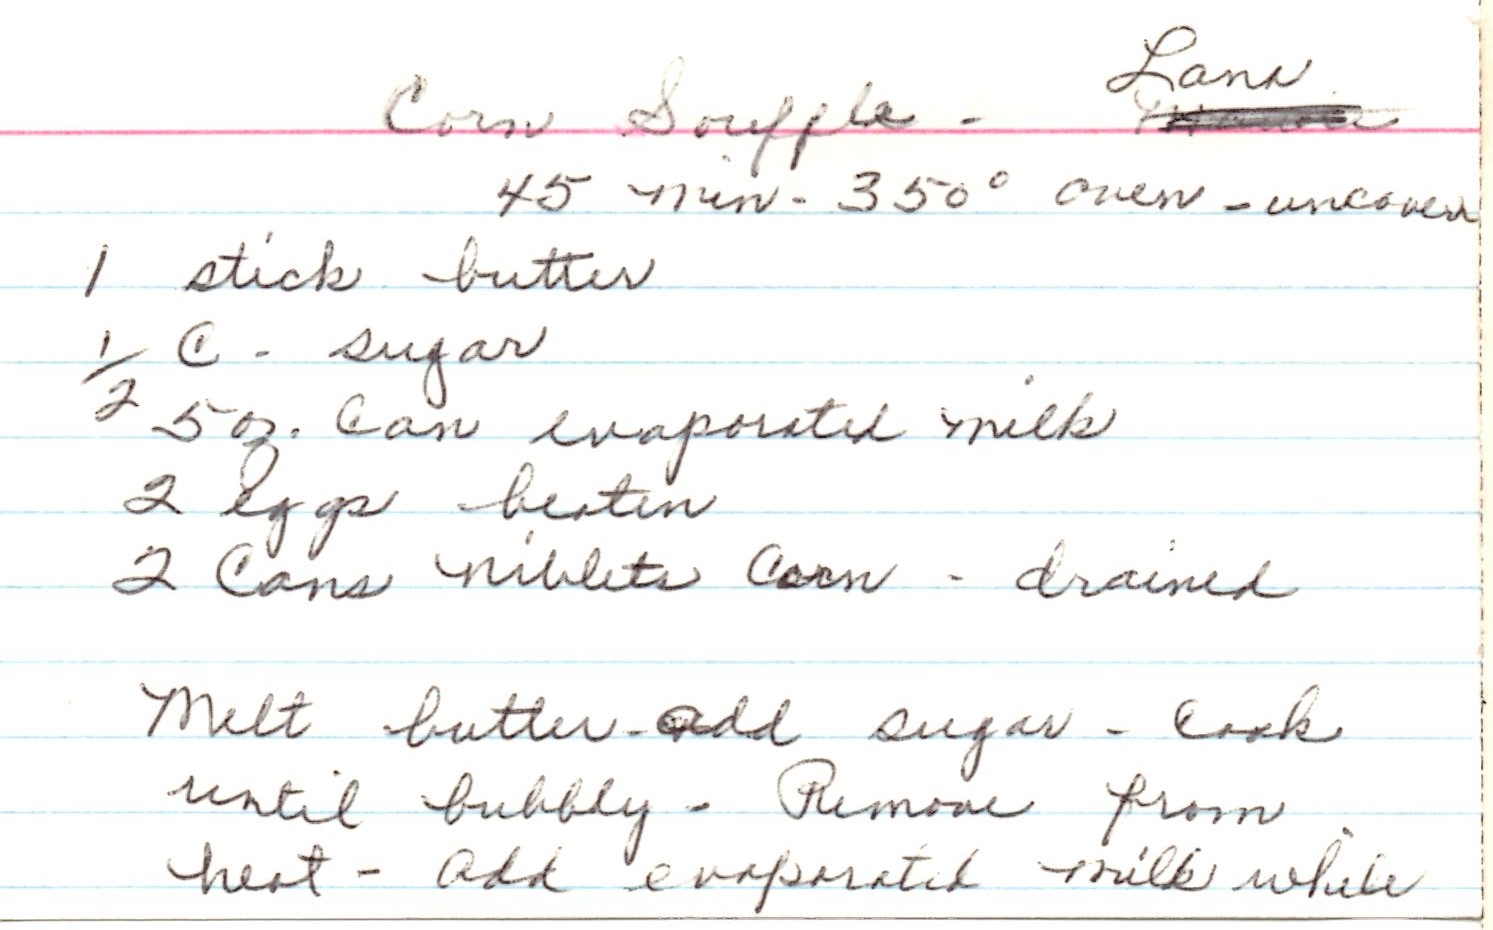 Lana
Corn Souffle -
45 min - 350° oven - uncover
1 stick butter
1/2 C - sugar
5 oz. Can evaporated milk
2 eggs beaten
2 Cans niblets Corn - drained
Melt butter - add sugar - Cook
until bubbly - Remove from
heat - add evaporated milk while